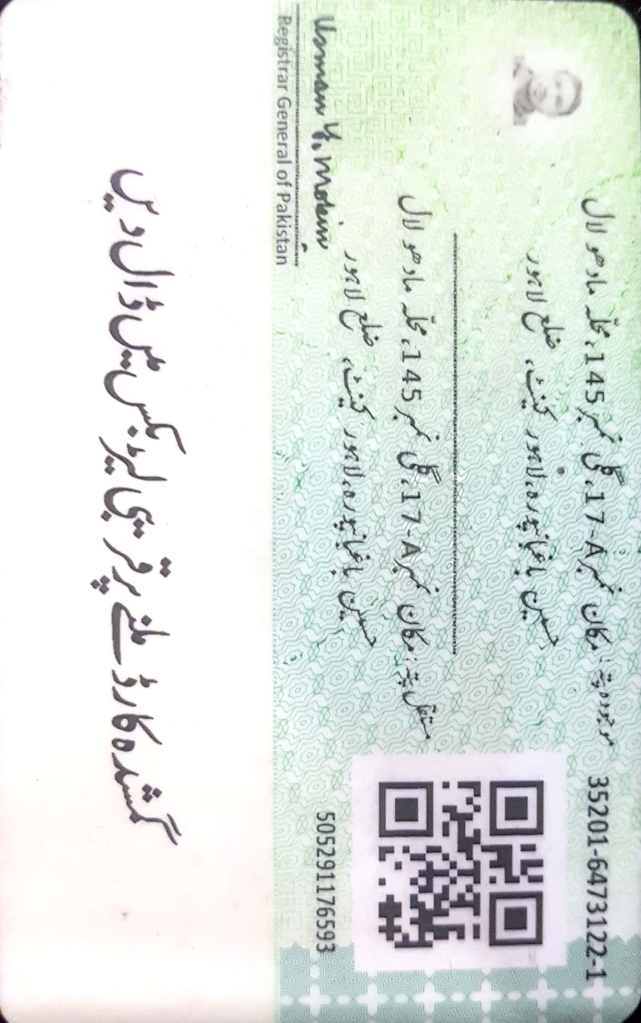 35201-6473122-1
موجودہ پتہ: مکان نمبر 17-A، گلی نمبر 145، محلہ مادھو لال
حسین باغبانپورہ، لاہور کینٹ، ضلع لاہور
مستقل پتہ: مکان نمبر 17-A، گلی نمبر 145، محلہ مادھو لال
حسین باغبانپورہ، لاہور کینٹ، ضلع لاہور
505291176593
Usman Y. Mobin
Registrar General of Pakistan
گمشدہ کارڈ ملنے پر قریبی لیٹر بکس میں ڈال دیں